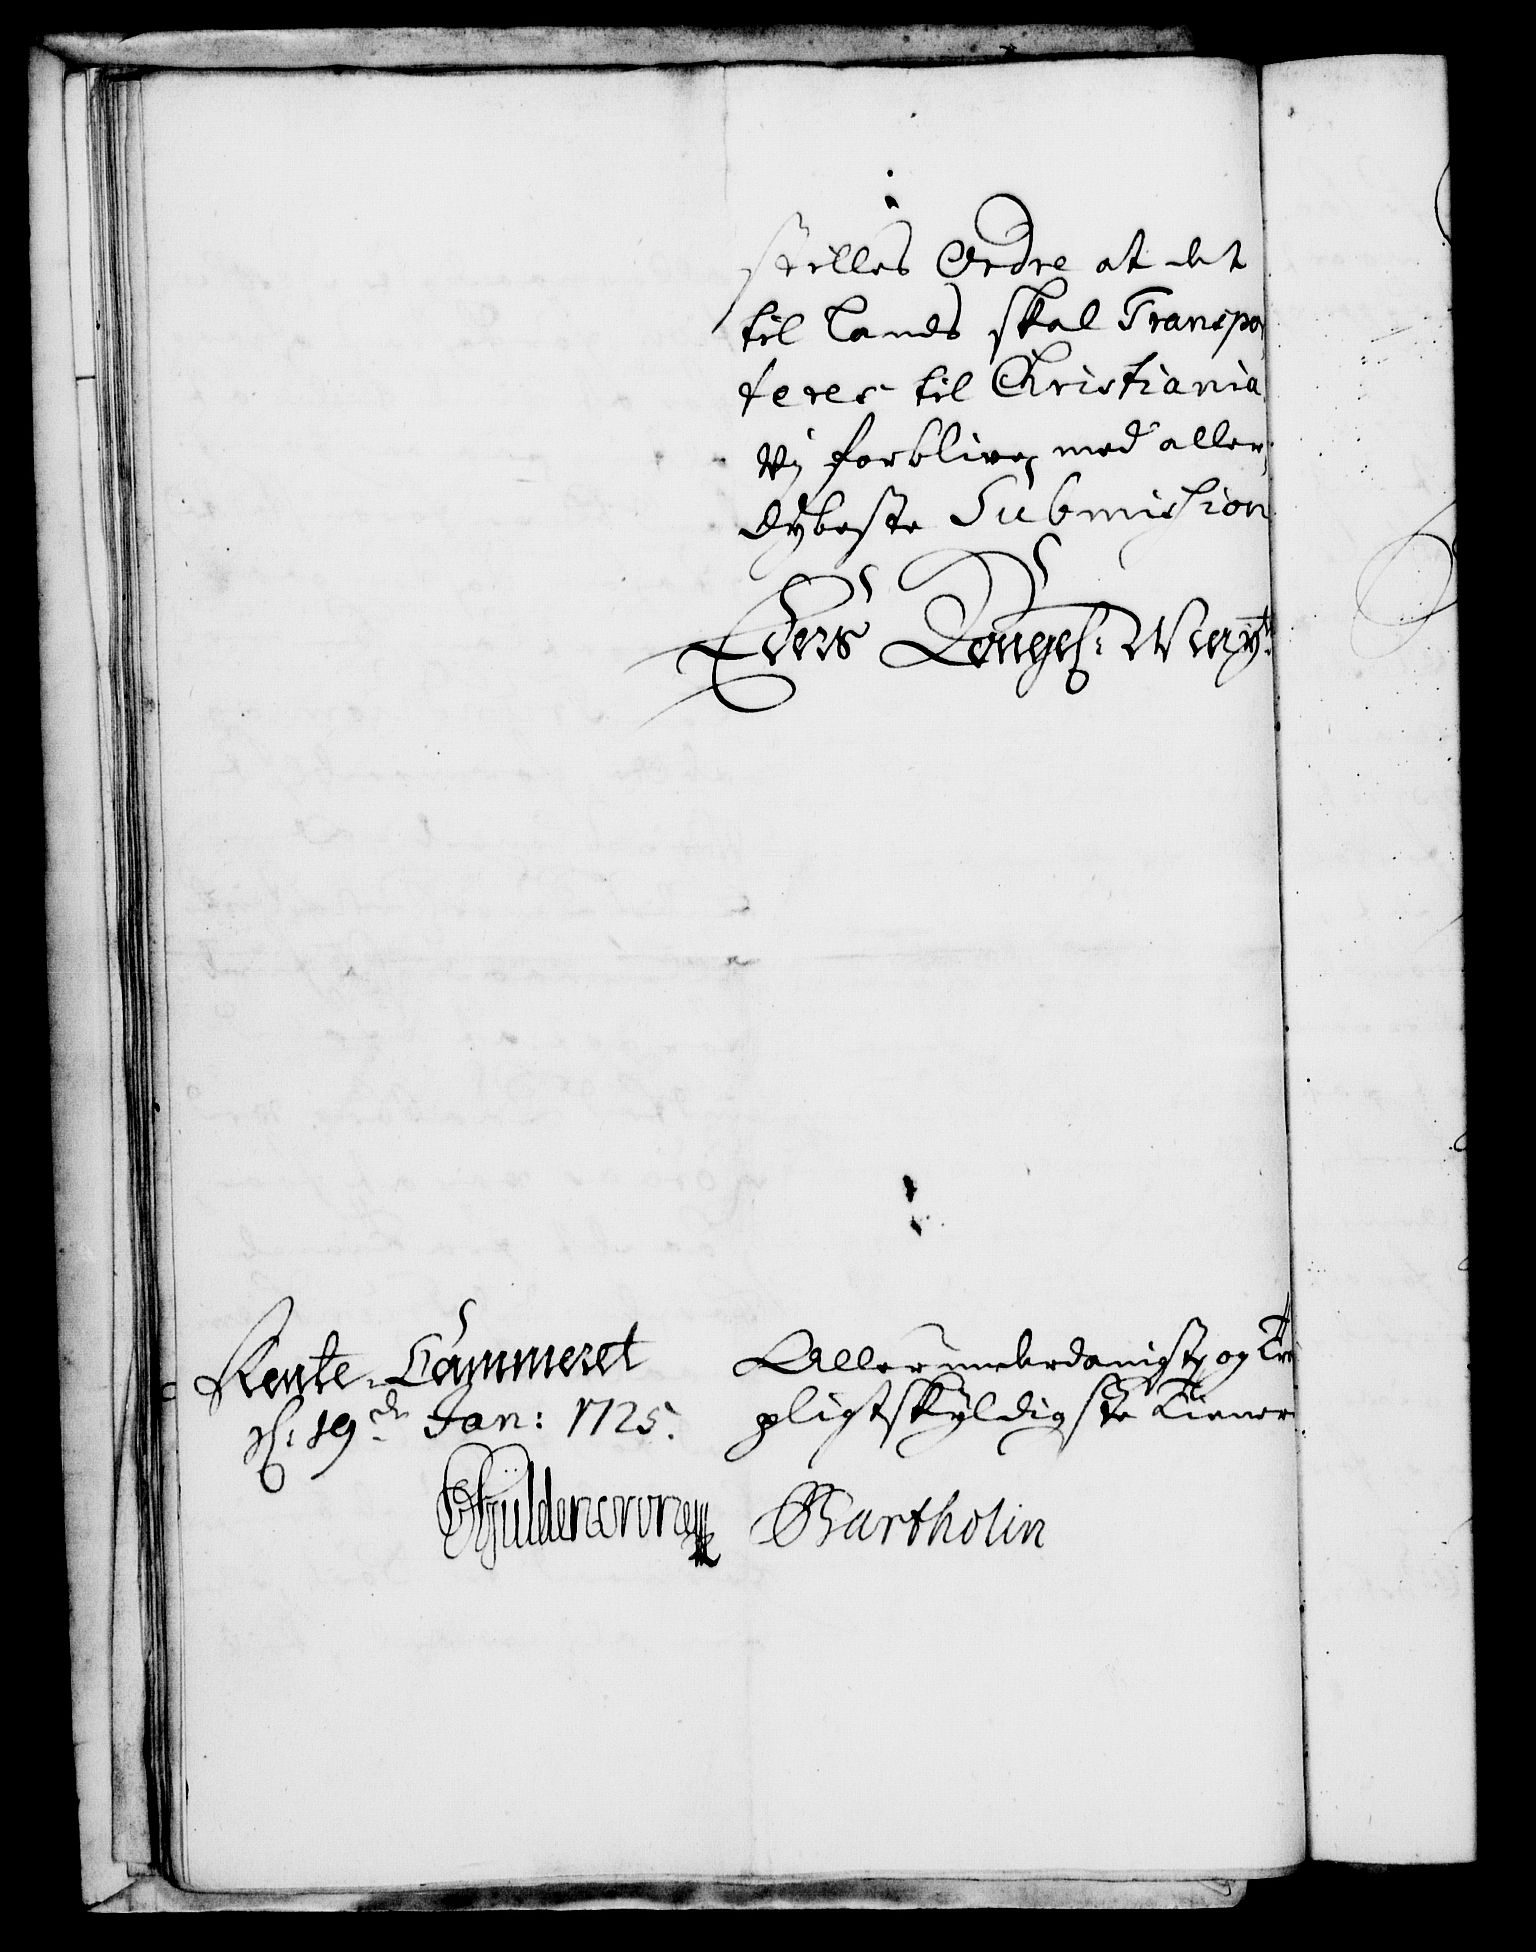 stilles Ordre at det
til Lands skal Transpor
teres til Christiania
Vj forblive med aller,
dybeste Submission
Eders Kongel: Mayts
Rente-Cammeret
d: 19de Jan: 1725.
Allerunderdanigste og Tro
pligtskyldigste Tienere
Gyldencrone
Bartholin